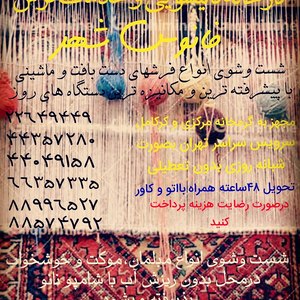 فانوس شهر
شست وشوی انواع فرشهای دست بافت و ماشینی
با پیشرفته ترین و مکانیزه ترین دستگاه های روز
۷۷۶۴۹۴۴۹
۴۴۳۵۷۲۸۰
۴۴۰۴۹۱۵۸
۶۶۳۵۷۳۳۵
۸۸۹۹۶۵۷۷
۸۸۵۷۴۷۹۲
مجهز به کارخانه مرکزی و کیرکامل
سرویس سراسر تهران بصورت
شبانه روزی بدون تعطیلی
تحویل ۴۸ساعته همراه بااتو و کاور
درصورت رضایت هزینه پرداخت
کنید
شست وشوی انواع مبلمان، موکت و خوشخواب
درمحل بدون ریزش آب با شامپو نانو